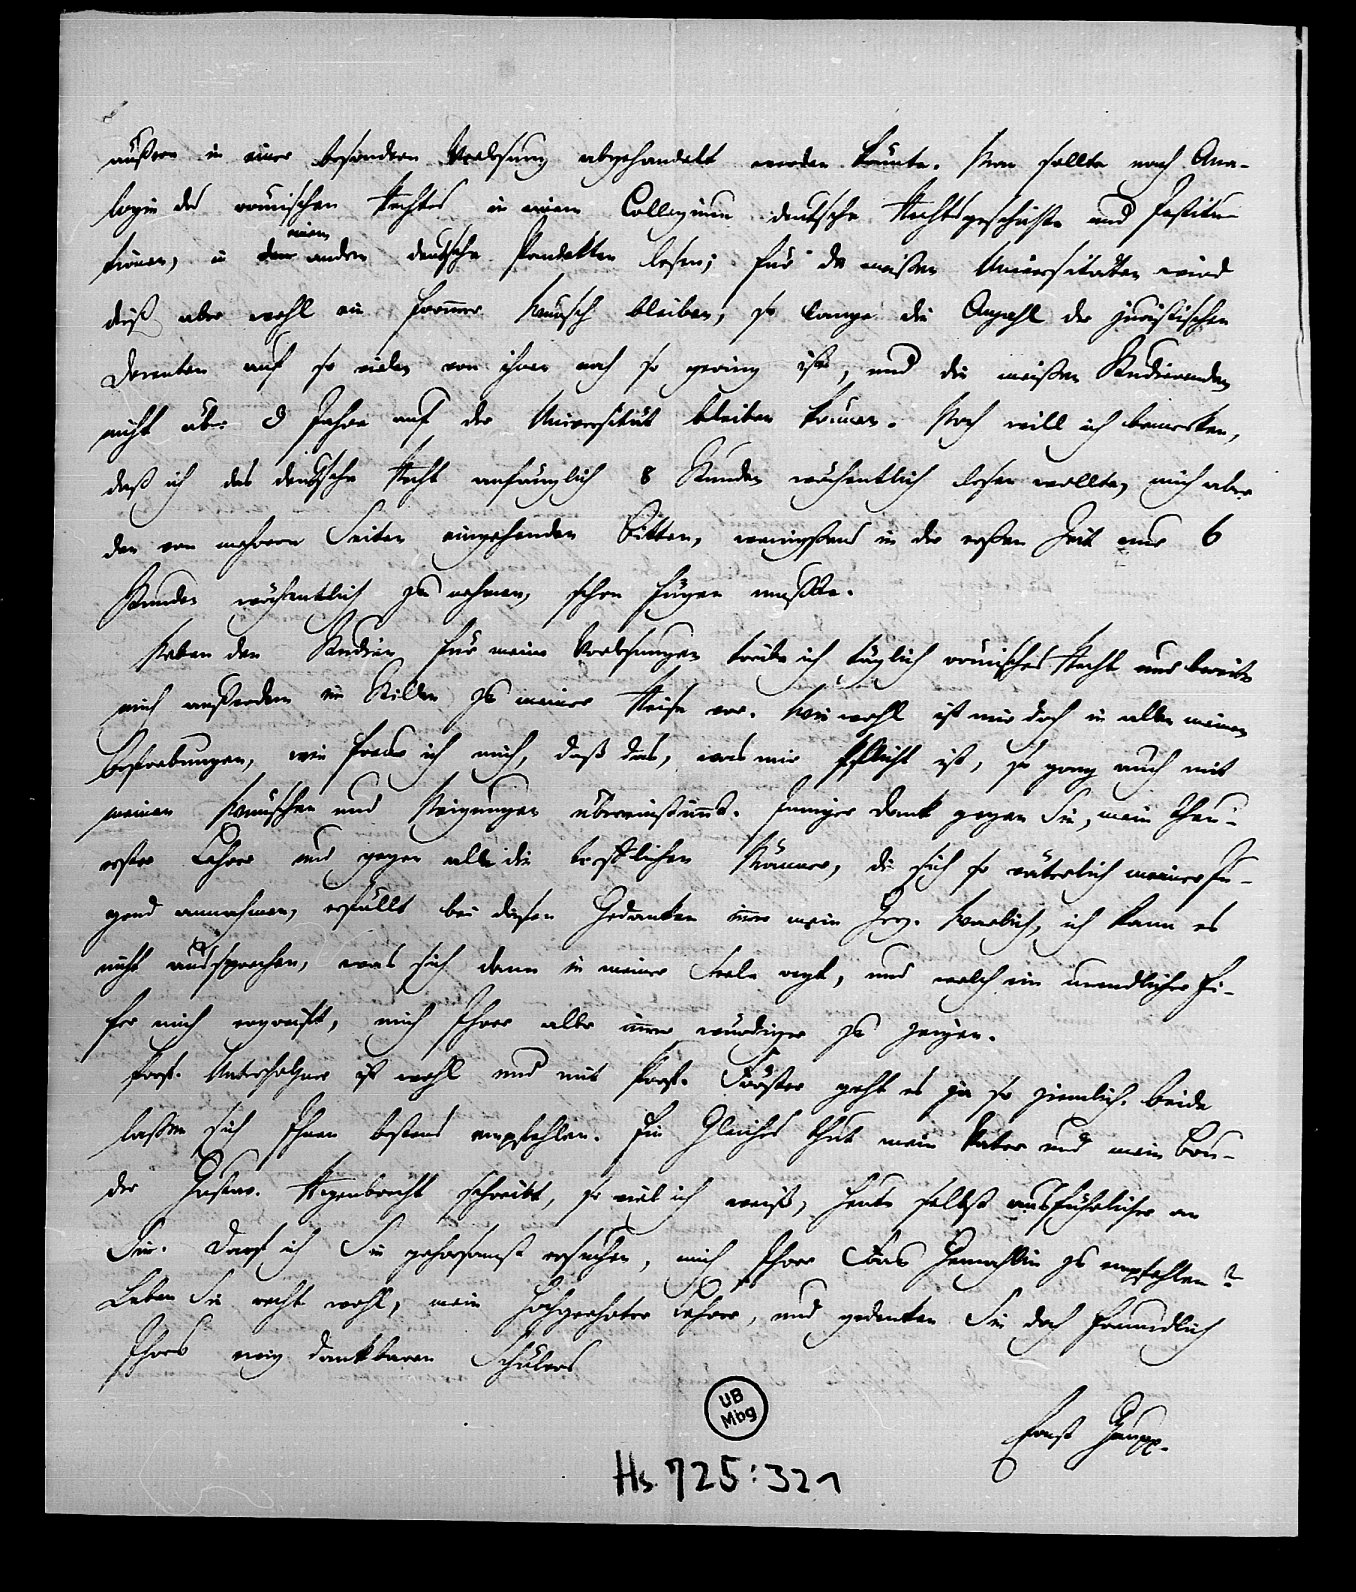 außen in einer besondern Vorlesung abgehandelt werden könnte. Man sollte nach Ana-
logie des römischen Rechtes in einem Collegium deutsche Rechtsgeschichte und Institu-
tionen, in einem andern deutsche Pandekten lesen; für die meisten Universitäten wird
dieß aber wohl ein frommer Wunsch bleiben, so lange die Anzahl der juristischen
Docenten auf so vielen von ihnen noch so gering ist, und die meisten Studierenden
nicht über 3 Jahre auf der Universität bleiben können. Noch will ich bemerken,
daß ich das deutsche Recht anfänglich 8 Stunden wöchentlich lesen wollte, mich aber
den von mehrern Seiten eingehenden Bitten, wenigstens in der ersten Zeit nur 6
Stunden wöchentlich zu nehmen, schon fügen mußte.
Neben den Studien für meine Vorlesungen treibe ich täglich römisches Recht und bereite
mich außerdem im Stillen zu meiner Reise vor. Wie wohl ist mir doch in allen meinen
Bestrebungen, wie freue ich mich, daß das, was mir Pflicht ist, so ganz auch mit
meinen Wünschen und Neigungen übereinstimmt. Inniger Dank gegen Sie, mein theu-
erster Lehrer und gegen alle die trefflichen Männer, die sich so väterlich meiner Ju-
gend annahmen, erfüllt bei diesen Gedanken immer mein Herz. Warlich, ich kann es
nicht aussprechen, was sich dann in meiner Seele regt, und welch ein unendlicher Ei-
fer mich ergreift, mich Ihrer aller immer würdiger zu zeigen.
Prof. Unterholzner ist wohl und mit Prof. Förster geht es ja so ziemlich. Beide
lassen sich Ihnen bestens empfehlen. Ein Gleiches thut mein Vater und mein Bru-
der Gustav. Regenbrecht schreibt, so viel ich weiß, heute selbst ausführlicher an
Sie. Darf ich Sie gehorsamst ersuchen, mich Ihrer Frau Gemahlin zu empfehlen?
Leben Sie recht wohl, mein hochgeehrter Lehrer, und gedenken Sie doch freundlich
Ihres ewig dankbaren Schülers
Ernst Gaupp.
UB
Mbg
Hs. 725:321